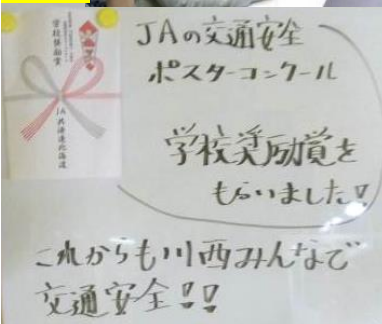 学校奨励賞
JA共済連北海道
JAの交通安全
ポスターコンクール
学校奨励賞を
もらいました!!
これからも川西みんなで
交通安全!!